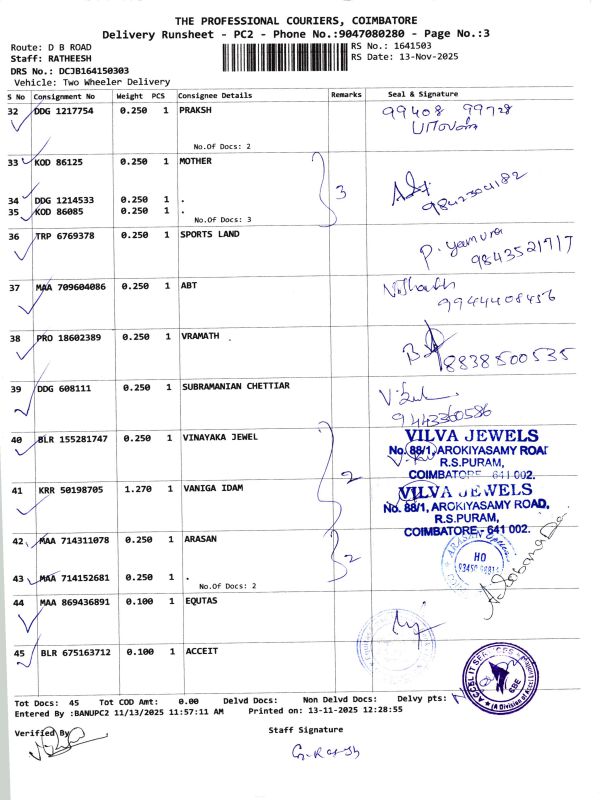 THE PROFESSIONAL COURIERS, COIMBATORE
Delivery Runsheet - PC2 - Phone No.:9047080280 - Page No.:3
Route: D B ROAD
RS No.: 1641503
Staff: RATHEESH
RS Date: 13-Nov-2025
DRS No.: DCJB164150303
Vehicle: Two Wheeler Delivery
S No Consignment No Weight PCS Consignee Details Remarks Seal & Signature
32 DDG 1217754 0.250 1 PRAKSH 99408 99728
No.Of Docs: 2
33 KOD 86125 0.250 1 MOTHER
34 DDG 1214533 0.250 1 . 3
35 KOD 86085 0.250 1 . 9842304182
No.Of Docs: 3
36 TRP 6769378 0.250 1 SPORTS LAND
P. Yamuna
9843521717
37 MAA 709604086 0.250 1 ABT
9944408456
38 PRO 18602389 0.250 1 VRAMATH .
8838500535
39 DDG 608111 0.250 1 SUBRAMANIAN CHETTIAR
9443360586
40 BLR 155281747 0.250 1 VINAYAKA JEWEL VILVA JEWELS
No. 88/1, AROKIYASAMY ROAD
R.S.PURAM,
COIMBATORE - 641 002.
41 KRR 50198705 1.270 1 VANIGA IDAM 2 VILVA JEWELS
No. 88/1, AROKIYASAMY ROAD,
R.S.PURAM,
COIMBATORE - 641 002.
42 MAA 714311078 0.250 1 ARASAN 2
ARASAN
HO
43 MAA 714152681 0.250 1 .
No.Of Docs: 2
44 MAA 869436891 0.100 1 EQUTAS
45 BLR 675163712 0.100 1 ACCEIT
ACCEL IT SERVICES
Tot Docs: 45 Tot COD Amt: 0.00 Delvd Docs: Non Delvd Docs: Delvy pts:
Entered By :BANUPC2 11/13/2025 11:57:11 AM Printed on: 13-11-2025 12:28:55
Verified By
Staff Signature